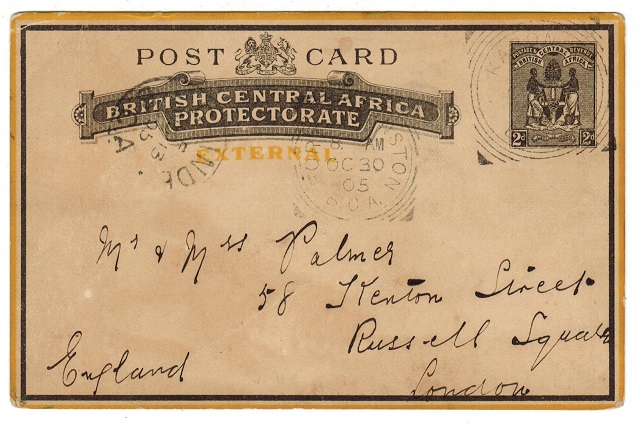 POST CARD
POSTAGE & REVENUE
BRITISH CENTRAL AFRICA
2d 2d
BRITISH CENTRAL AFRICA
PROTECTORATE
EXTERNAL
AM
OC 30
05
LONDON
Mr & Mrs Palmer
58 Kenton Street
Russell Square
London
England